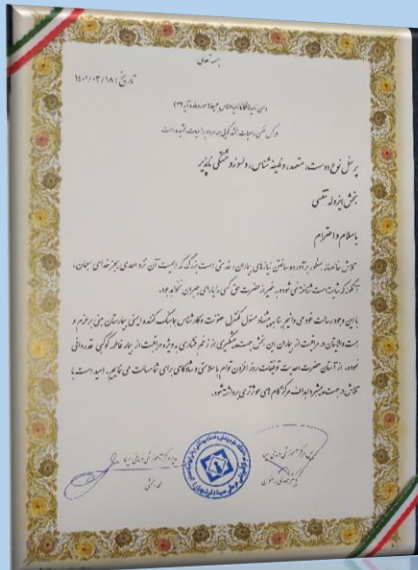 بسمه تعالی
تاریخ: ۱۴۰۱/۰۳/۱۸
و من احیاها فکانما احیا الناس جمیعا (سوره مائده آیه ۳۲)
هر کس نفسی را حیات بخشد گویی همه مردم را حیات بخشیده است
پرسنل نوع دوست، متعهد، وظیفه شناس، دلسوز و خستگی ناپذیر
بخش ایزوله تنفسی
با سلام و احترام
تلاش خالصانه بمنظور برآورده ساختن نیازهای بیماران، خدمتی است بزرگ که اهمیت آن نزد احدی بجز خدای سبحان،
آنگونه که شایسته است شناخته نمی شود و به غیر از حضرت حق کسی را یارای جبران نخواهد بود.
با این وجود رسالت خود می دانیم تا به پیشنهاد مسئول کنترل عفونت و کارشناس هماهنگ کننده ایمنی بیمارستان مبنی بر عزم و
همت والایتان در مراقبت از بیماران این بخش جهت پیشگیری از زخم فشاری به ویژه مراقبت از بیمار فاطمه کوکبی قدردانی
نموده، از آستان حضرت احدیت توفیقات روز افزون توام با سلامتی و شادکامی برای شما مسالت می نماییم. امید است با
تلاش در جهت پیشبرد اهداف مرکز گام های موثرتری برداشته شود.